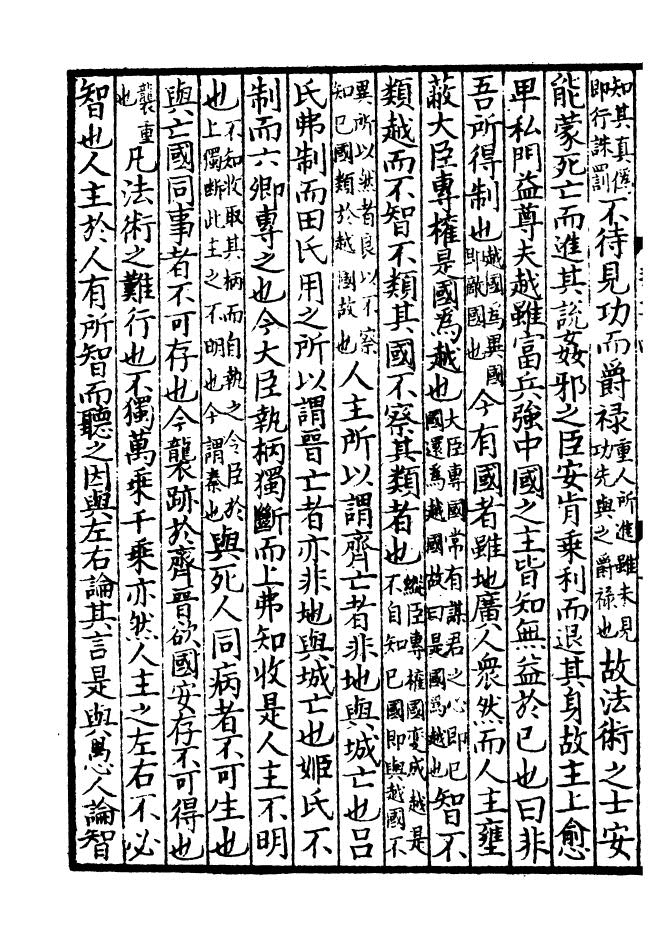 知其真僞即行誅罰不待見功而爵祿重人所進雖未見功先與之爵祿也故法術之士安
能蒙死亡而進其說姦邪之臣安肯乘利而退其身故主上愈
卑私門益尊夫越雖富兵強中國之主皆知無益於已也曰非
吾所得制也越國爲異國即敵國也今有國者雖地廣人衆然而人主壅
蔽大臣專權是國爲越也大臣專國常有謀君之心即已國還爲越國故曰是國爲越也智不
類越而不智不類其國不察其類者也縱臣專權國變成越是不自知已國即與越國不
異所以然者良以不察知已國類於越國故也人主所以謂齊亡者非地與城亡也呂
氏弗制而田氏用之所以謂晉亡者亦非地與城亡也姬氏不
制而六卿專之也今大臣執柄獨斷而上弗知收是人主不明
也不知收取其柄而自執之令臣於上獨斷此主之不明也今謂秦也與死人同病者不可生也
與亡國同事者不可存也今襲跡於齊晉欲國安存不可得也
襲重也凡法術之難行也不獨萬乘千乘亦然人主之左右不必
智也人主於人有所智而聽之因與左右論其言是與愚人論智